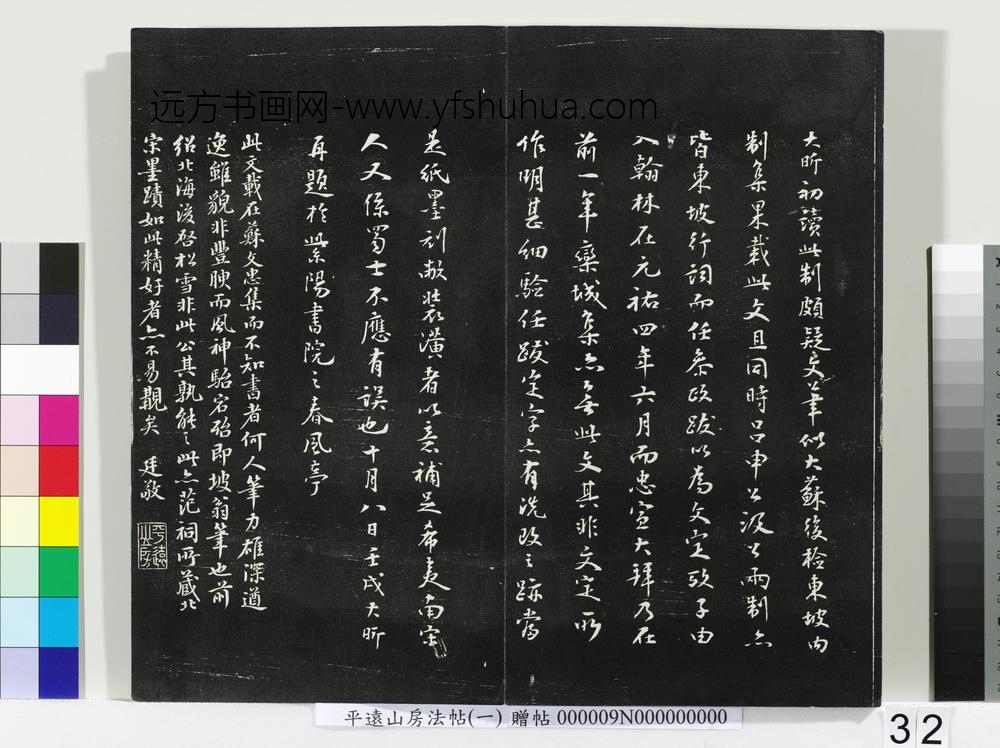 大昕初讀此制頗疑文筆似大蘇後檢東坡內
制集果載此文且同時呂申公汲公兩制亦
皆東坡行詞而任希夷跋以為文定攷子由
入翰林在元祐四年六月而忠宣大拜乃在
前一年欒城集亦無此文其非文定所
作明甚細驗任跋定字亦有洗改之跡當
是紙墨刓敝裝潢者以意補足希夷南宋
人又係蜀士不應有誤也十月八日壬戌大昕
再題於紫陽書院之春風亭
此文載在蘇文忠集而不知書者何人筆力雄深遒
逸雖貌非豐腴而風神駘宕殆即坡翁筆也前
紹北海後啓松雪非此公其孰能之此亦范祠所藏北
宋墨蹟如此精好者亦不易觀矣 廷敬
平遠山房
远方书画网-www.yfshuhua.com
平遠山房法帖(一) 贈帖 000009N000000000
32